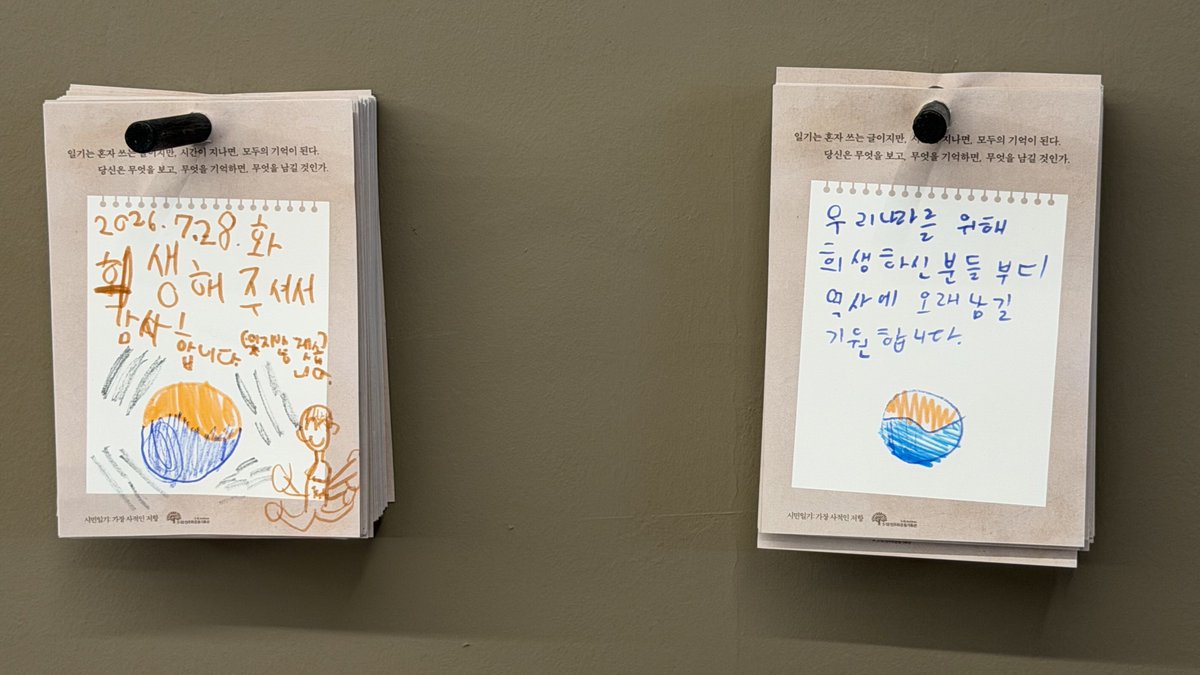 일기는 혼자 쓰는 글이지만, 시간이 지나면, 모두의 기억이 된다.
당신은 무엇을 보고, 무엇을 기억하면, 무엇을 남길 것인가.
2026.7.28.화
희생해 주셔서
감사합니다.
(잊지않겠습
니다.
시민일기: 가장 사적인 저항
5·18민주화운동기록관
일기는 혼자 쓰는 글이지만, 시 지나면, 모두의 기억이 된다.
당신은 무엇을 보고, 무엇을 기억하면, 무엇을 남길 것인가.
우리나라를 위해
희생하신분들 부디
역사에 오래남길
기원합니다.
시민일기: 가장 사적인 저항
5·18민주화운동기록관